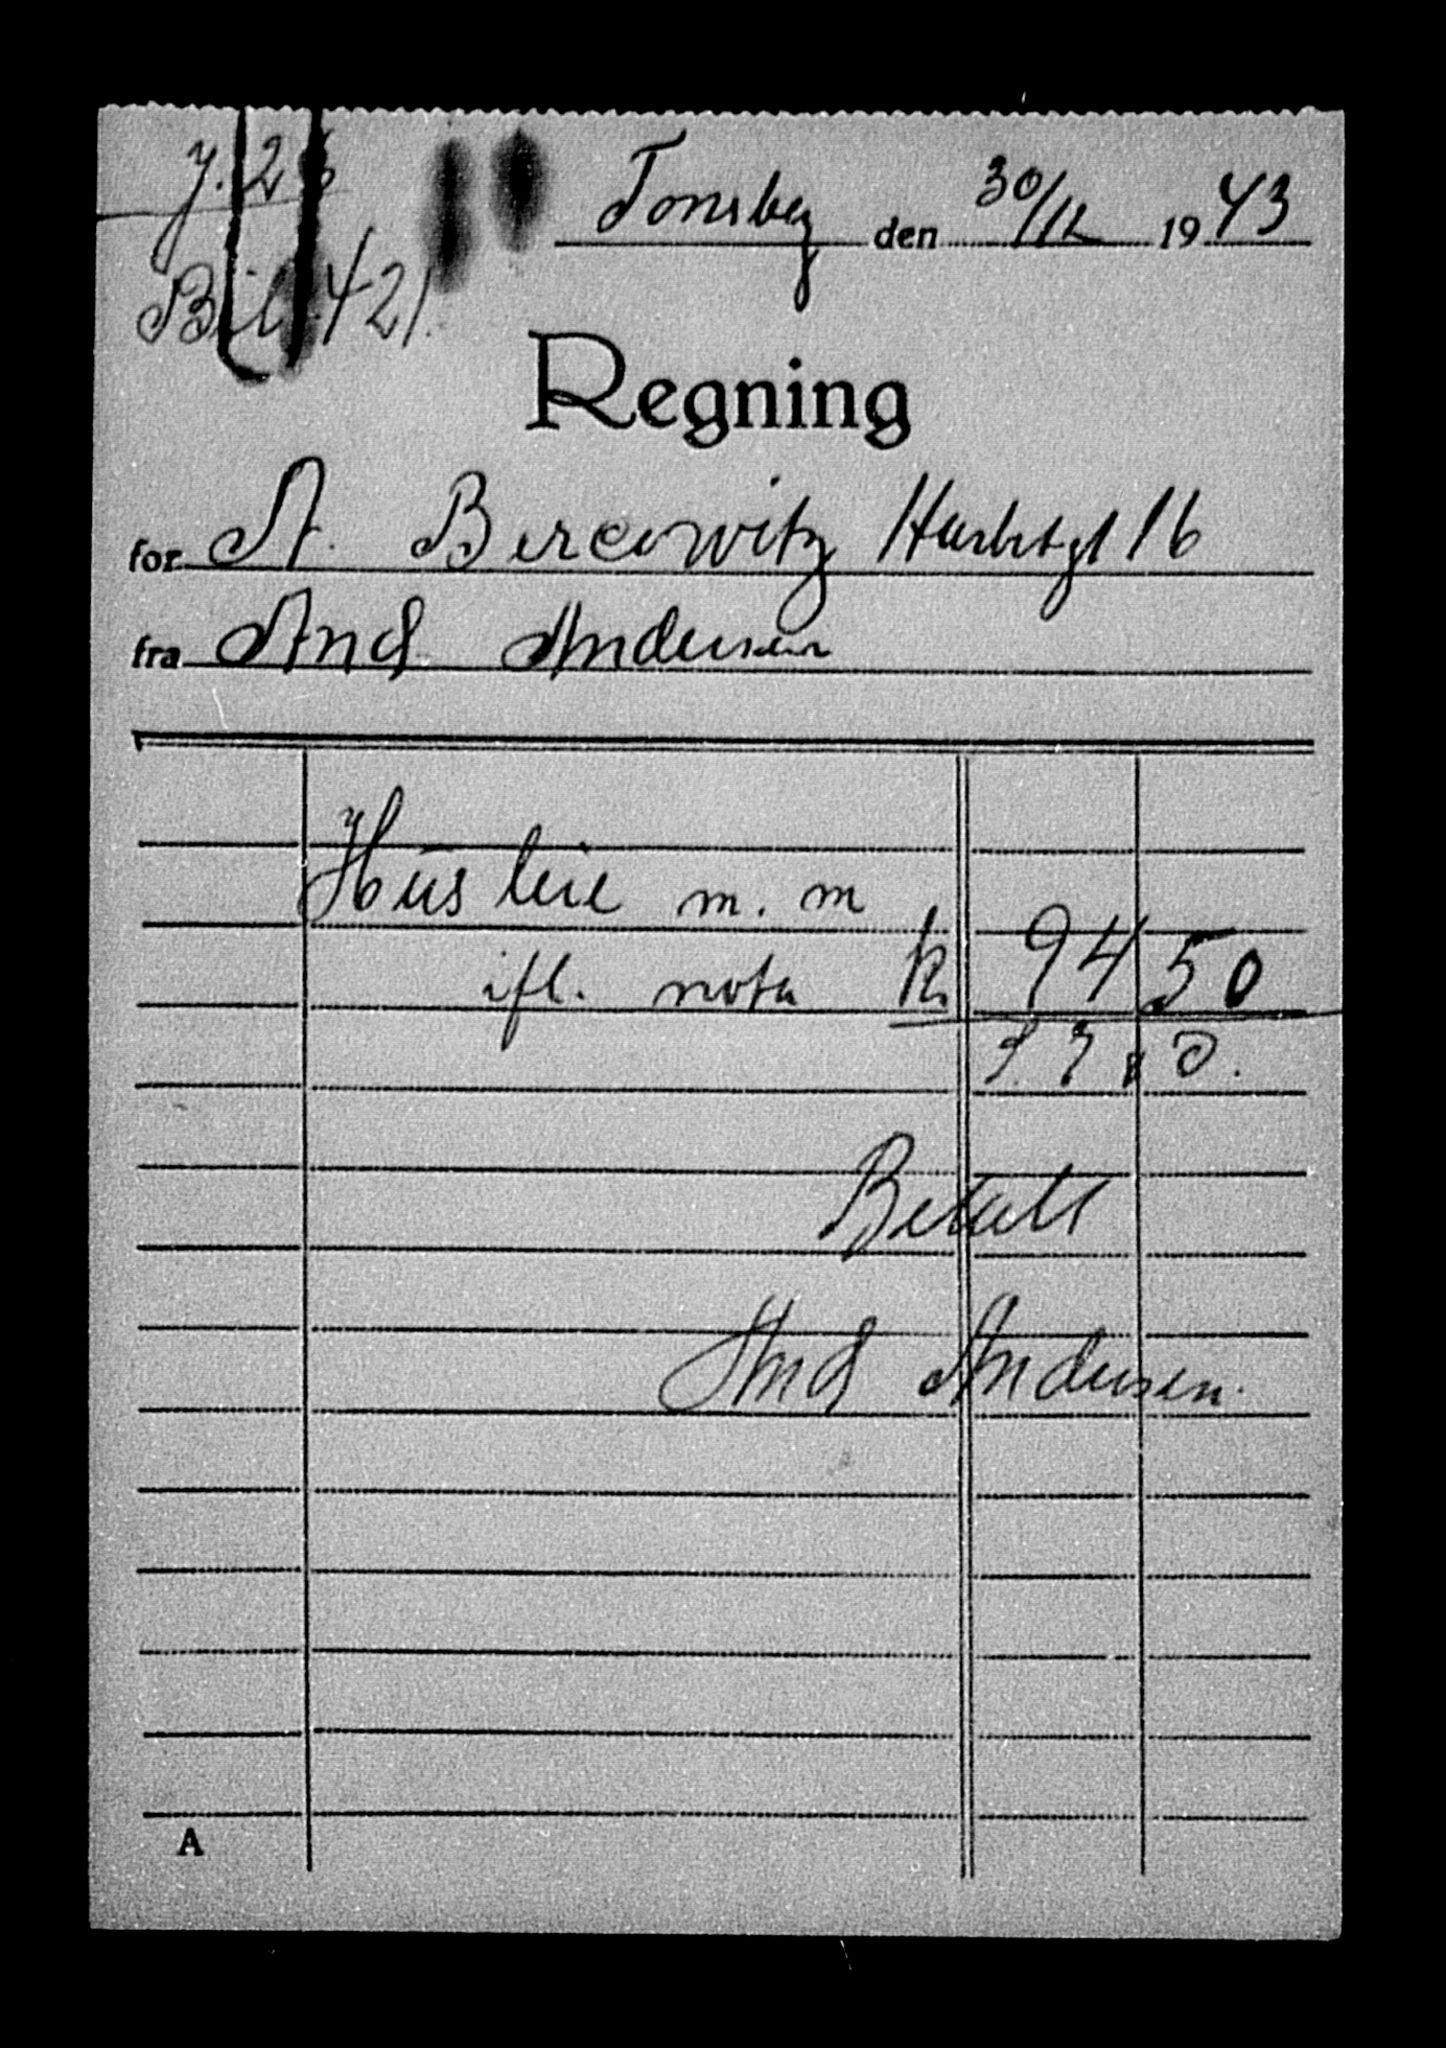 J. 26
Bil. 421.
Tønsberg den 30/12 1943
Regning
for A. Bercowitz 16
fra And Andersen
Husleie m.m
ifl. nota kr. 94 50
Betalt
And Andersen.
A